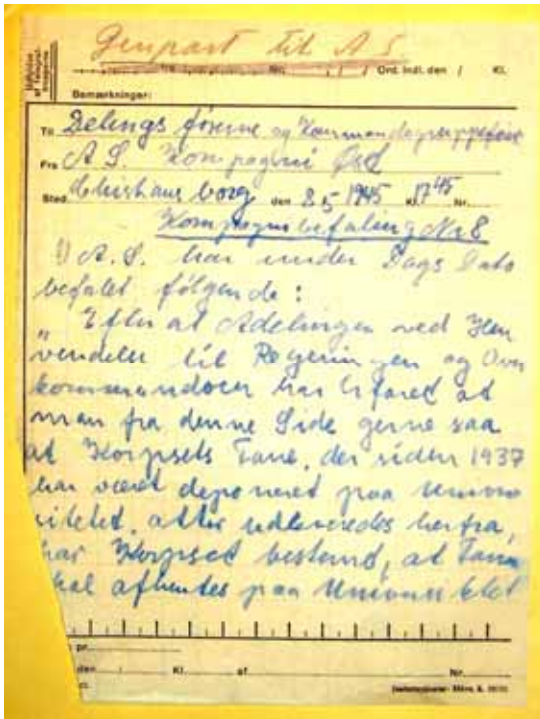 Genpart til A S
Nr. / / Ord. Indl. den / Kl.
Bemærkninger:
Til Delings førerne og Kommandogruppefører
Fra A. S. Kompagni Øst
Sted Christiansborg den 8-5-1945 Kl. 17⁴⁵ Nr.
Kompagnibefaling Nr 8
1) A. S. har under Dags Dato
befalet følgende:
"Efter at Afdelingen ved Hen
vendelse til Regeringen og Over
kommandoen har erfaret at
man fra denne Side gerne saa
at Korpsets Fane, der siden 1937
har været deponeret paa Univer
sitetet, atter udleveredes herfra,
har Korpset bestemt, at Fanen
skal afhentes paa Universitetet
pr.
den Kl. af Nr.